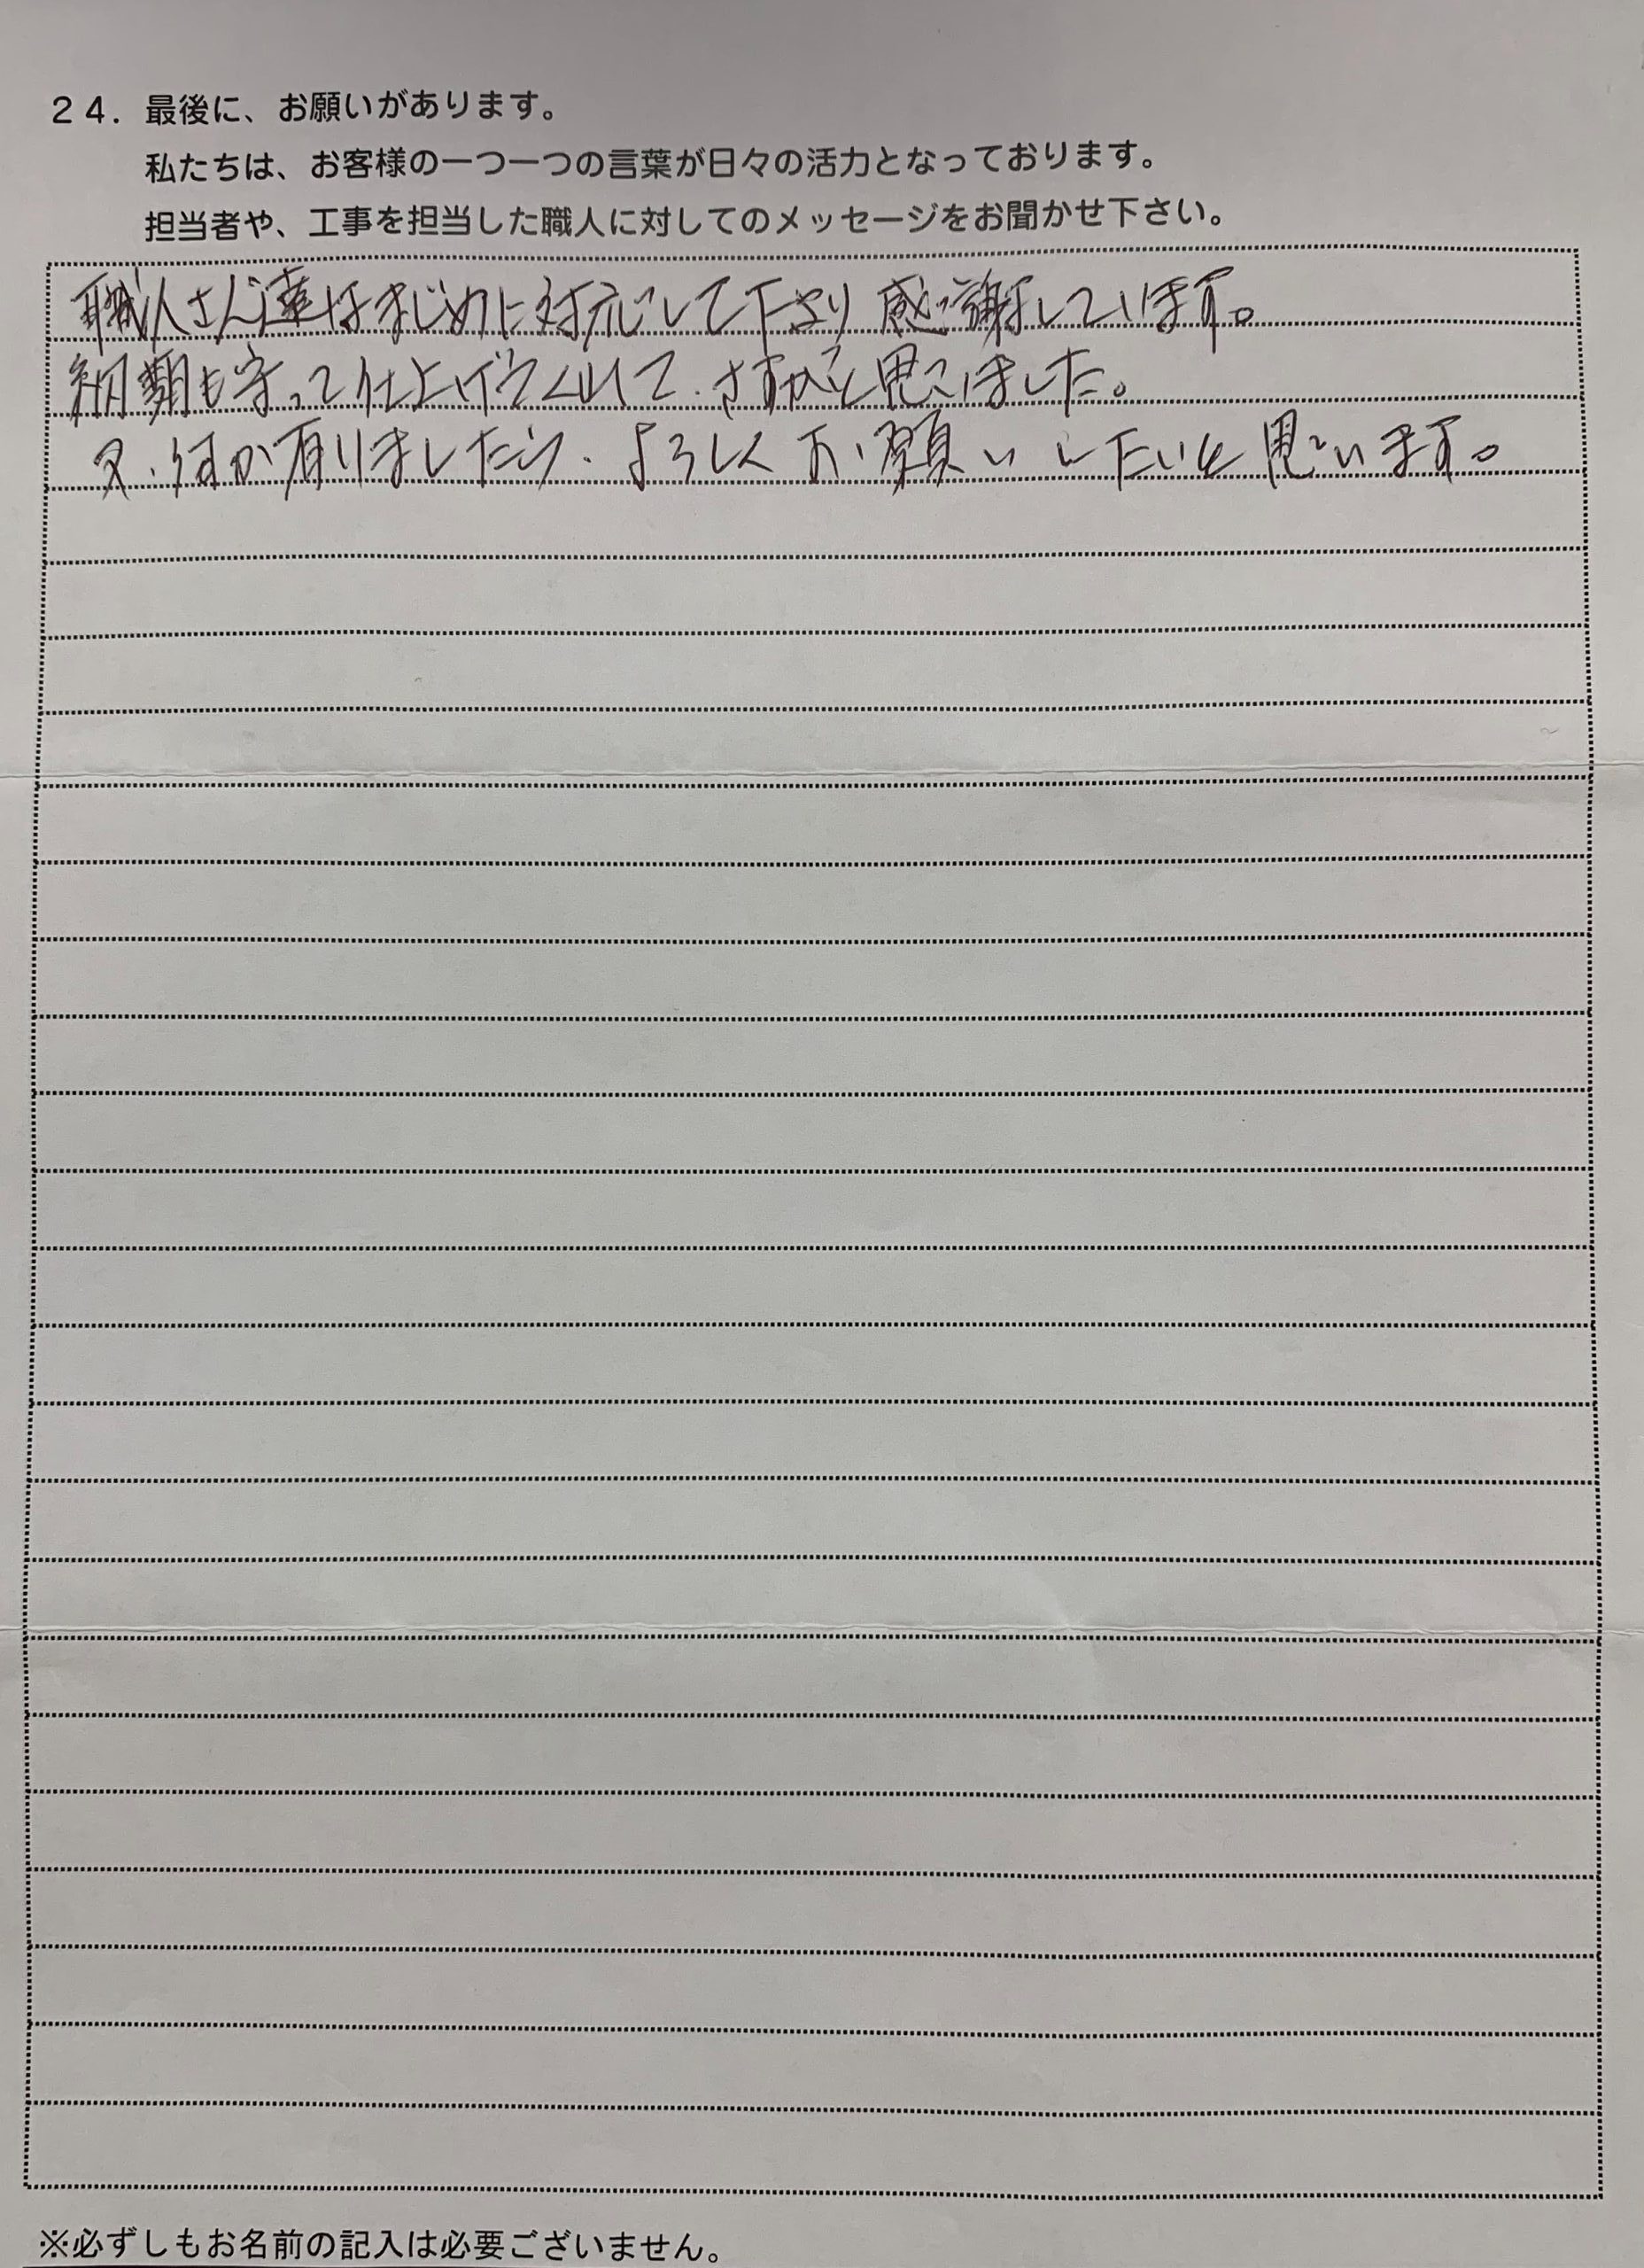 24. 最後に、お願いがあります。
私たちは、お客様の一つ一つの言葉が日々の活力となっております。
担当者や、工事を担当した職人に対してのメッセージをお聞かせ下さい。
職人さん達はまじめに対応して下さり 感謝しています。
納期も守って仕上げてくれて、さすがと思いました。
又、何か有りましたら、よろしくお願いしたいと思います。
※必ずしもお名前の記入は必要ございません。